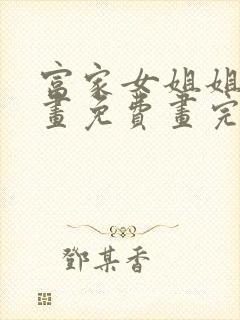 富家女姐姐
畫免費畫完
鄧某香